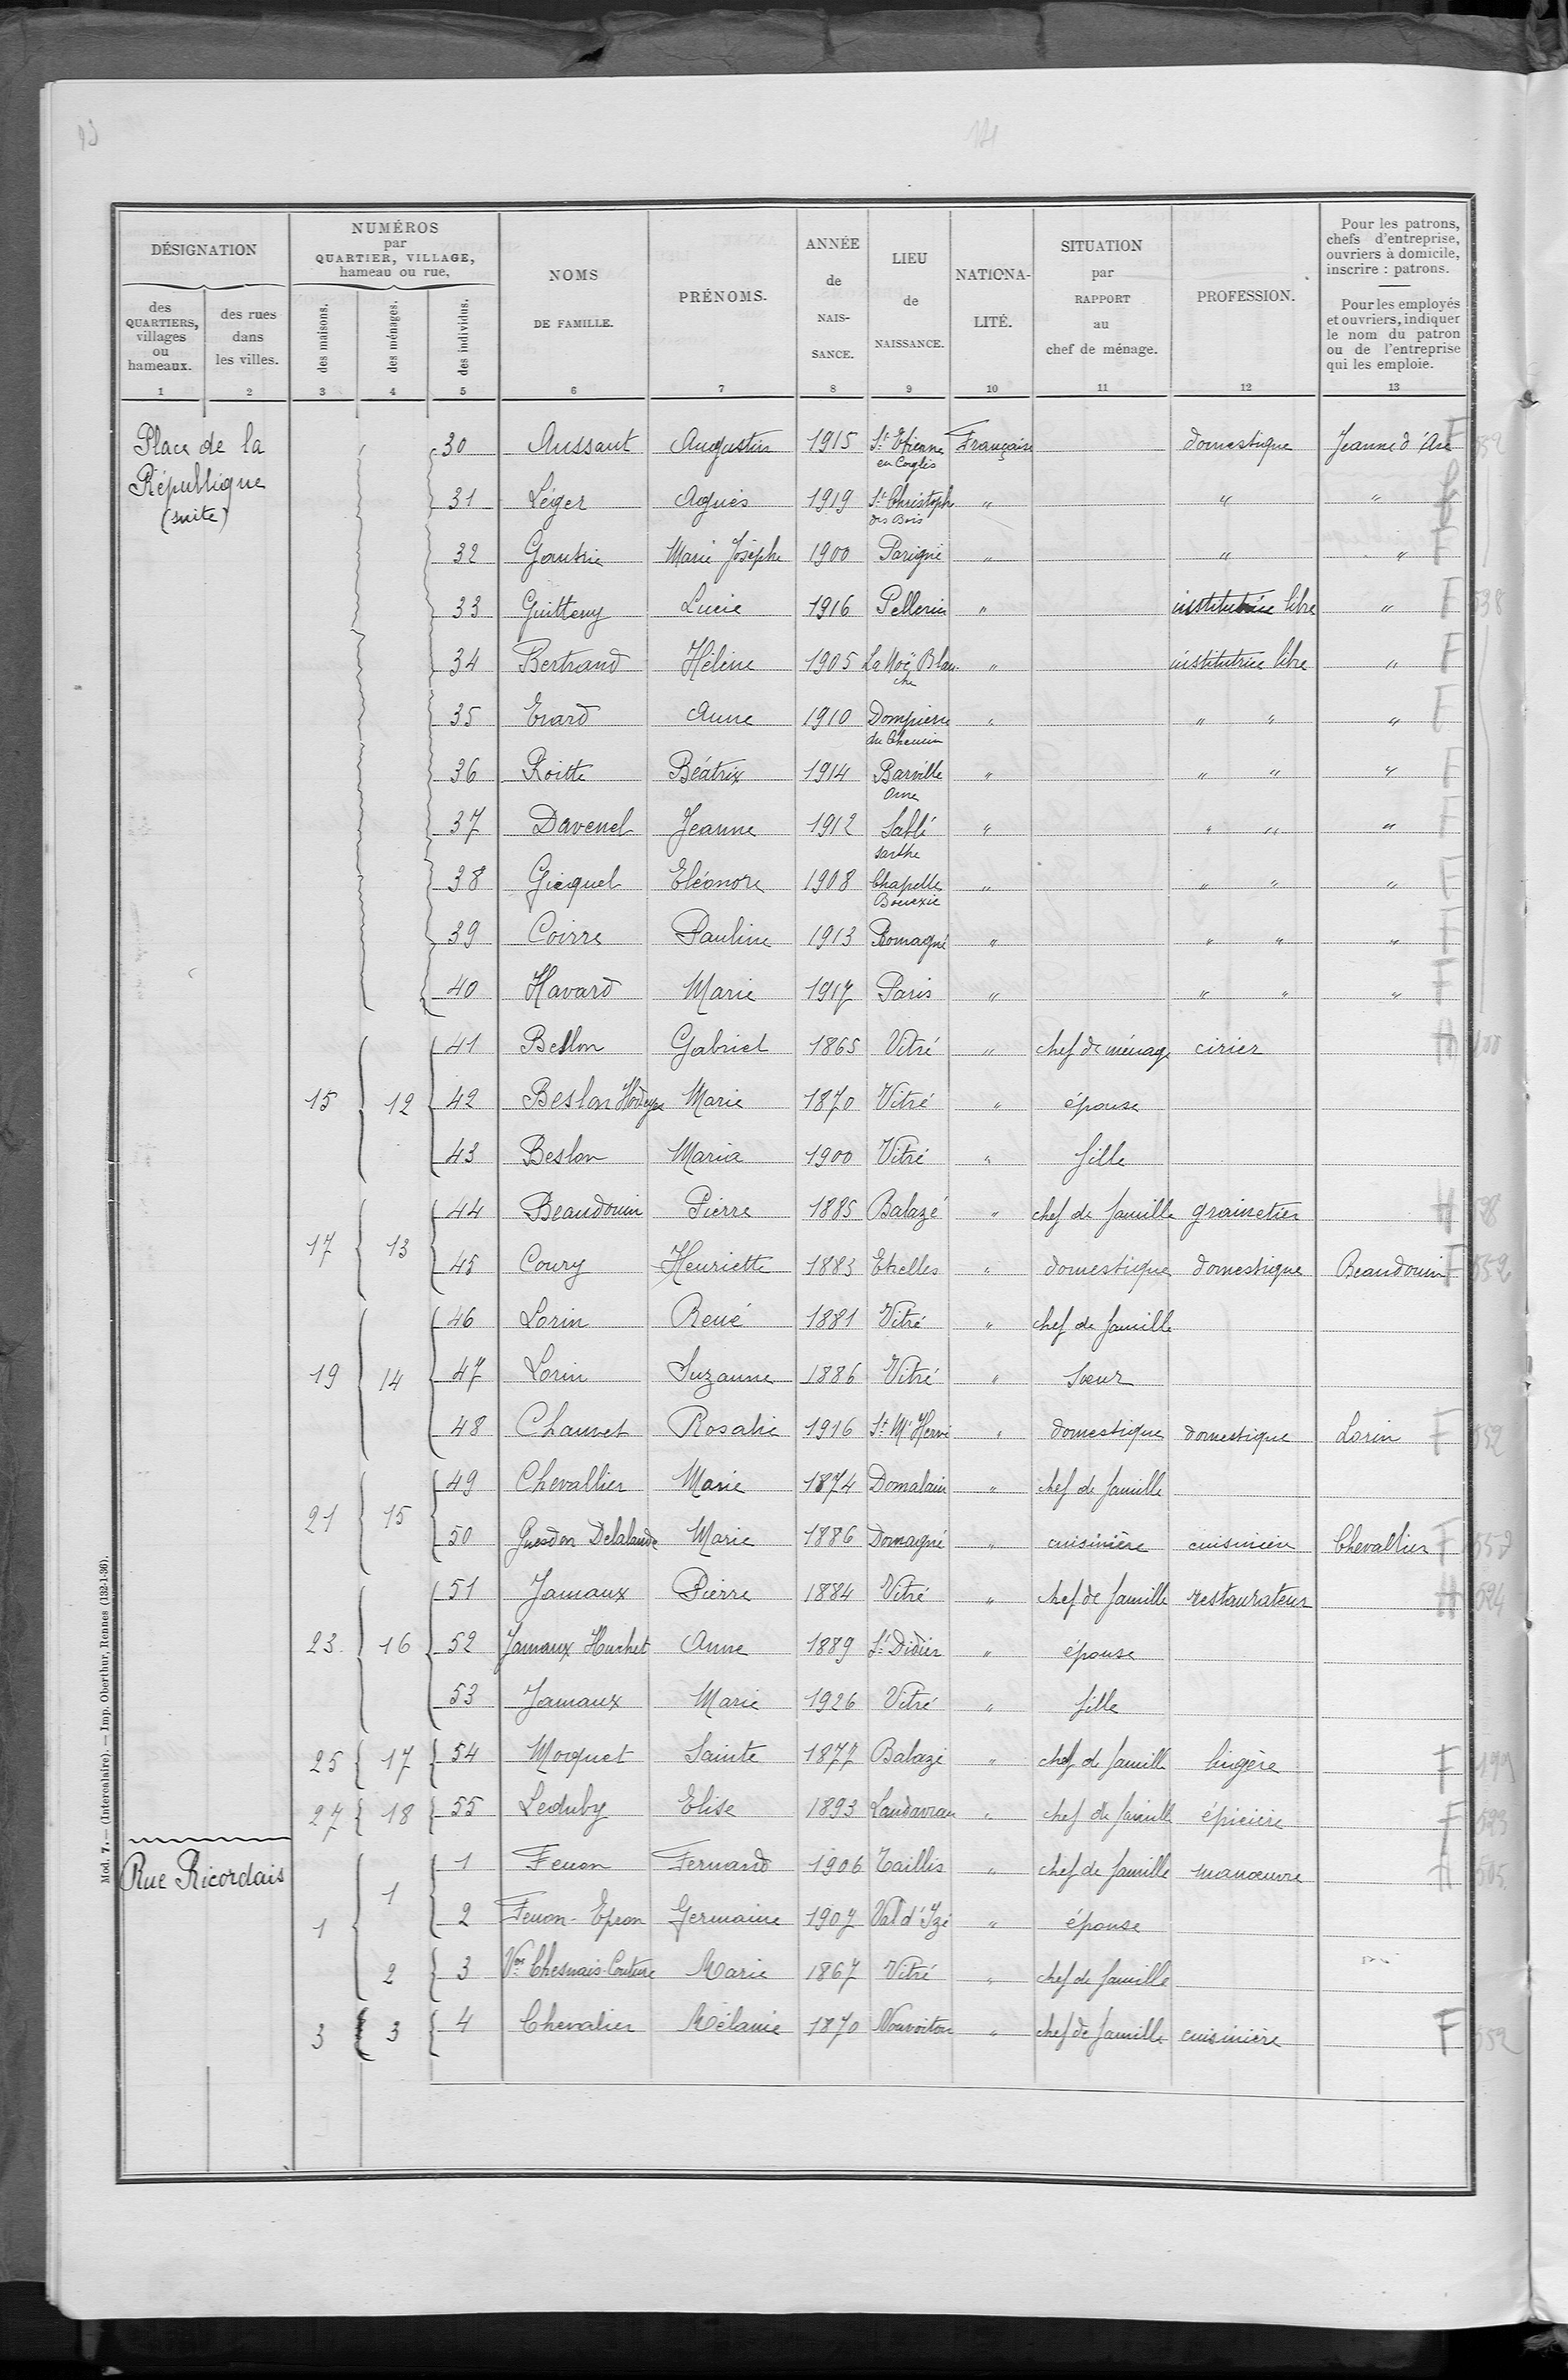 DÉSIGNATION
des QUARTIERS, villages ou hameaux.
des rues dans les villes.
NUMÉROS par QUARTIER, VILLAGE, hameau ou rue,
des maisons.
des ménages.
des individus.
NOMS DE FAMILLE.
PRÉNOMS.
ANNÉE de NAIS-SANCE.
LIEU de NAISSANCE.
NATIONA-LITÉ.
SITUATION par RAPPORT au chef de ménage.
PROFESSION.
Pour les patrons, chefs d'entreprise, ouvriers à domicile, inscrire : patrons.
Pour les employés et ouvriers, indiquer le nom du patron ou de l'entreprise qui les emploie.
1 2 3 4 5 6 7 8 9 10 11 12 13
Place de la République (suite)
30 Aussant Augustin 1915 St Etienne en Coglès Française domestique Jeanne d'Arc F 552
31 Léger Agnès 1919 St Christophe des Bois " " "
32 Gautrie Marie Josèphe 1900 Parigné " " " F
33 Guitteny Lucie 1916 Pellerin " institutrice libre " F 538
34 Bertrand Hélène 1905 La Noë Blanche " institutrice libre " F
35 Erard Anne 1910 Dompierre du Chemin " " " " F
36 Roitte Béatrix 1914 Barville Orne " " " " F
37 Davenel Jeanne 1912 Sablé Sarthe " " " " F
38 Gicquel Eléonore 1908 Chapelle Bouexic " " " " F
39 Coirre Pauline 1913 Romagné " " " " F
40 Havard Marie 1917 Paris " " " " F
41 Bellon Gabriel 1865 Vitré " chef de ménage cirier H
15 12 42 Beslon Marie 1870 Vitré " épouse
43 Beslon Maria 1900 Vitré " fille
44 Beaudouin Pierre 1885 Balazé " chef de famille grainetier H
17 13 45 Coury Henriette 1883 Etrelles " domestique domestique Beaudouin F 552
46 Lorin René 1881 Vitré " chef de famille
19 14 47 Lorin Suzanne 1886 Vitré " sœur
48 Chauvet Rosalie 1916 St M Hervé " domestique domestique Lorin F 552
49 Chevallier Marie 1874 Domalain " chef de famille
21 15 50 Guesdon Delalande Marie 1886 Domagné " cuisinière cuisinière Chevallier F 552
51 Jamaux Pierre 1884 Vitré " chef de famille restaurateur H 524
23 16 52 Jamaux Huchet Anne 1889 St Didier " épouse
53 Jamaux Marie 1926 Vitré " fille
25 17 54 Moquet Sainte 1877 Balazé " chef de famille lingère F 199
27 18 55 Leduby Elise 1893 Landavran " chef de famille épicière F 523
Rue Ricordais
1 1 1 Feuon Fernand 1906 Taillis " chef de famille manœuvre H 505
2 Feuon-Epron Germaine 1907 Val d'Izé " épouse
2 3 Vve Chesnais-Couture Marie 1867 Vitré " chef de famille
3 3 4 Chevalier Mélanie 1870 Nouvoitou " chef de famille cuisinière F 552
Mod. 7. — (Intercalaire). — Imp. Oberthur, Rennes (132-1-36).